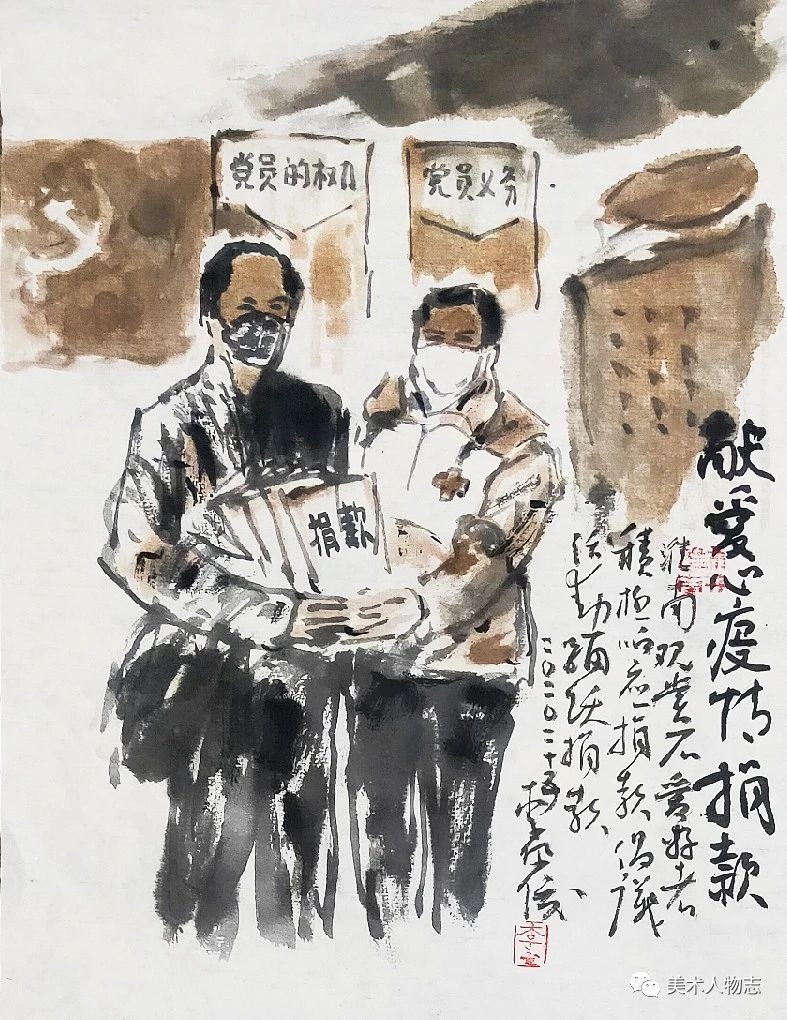 党员的权力
党员义务
捐款
献爱心疫情捐款
观赏石爱好者
積极响应捐款倡议
活动踊跃捐款
二〇二〇二十五
美术人物志